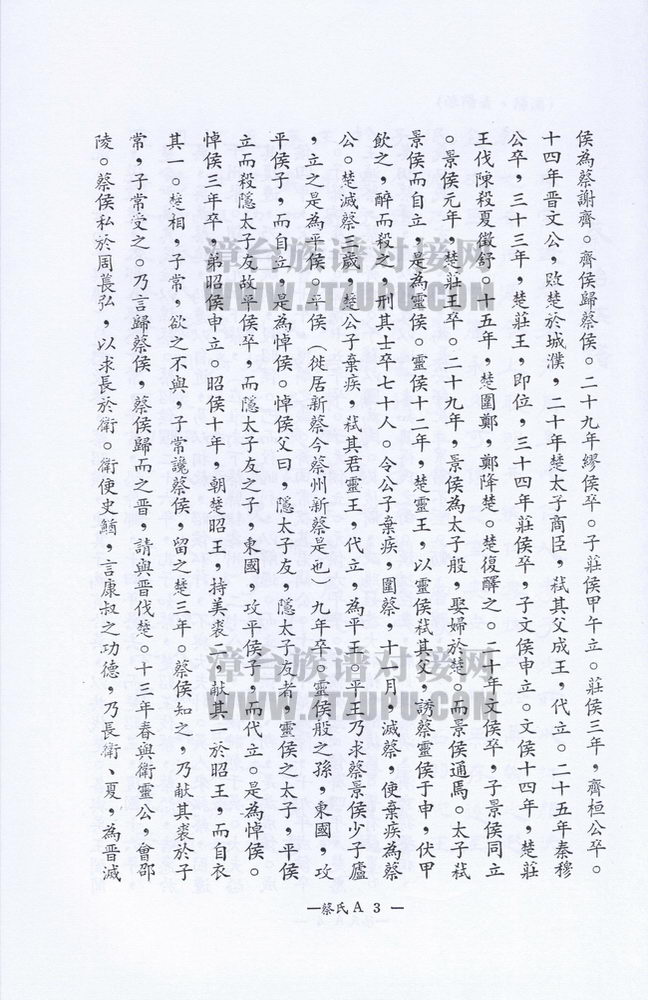 侯為蔡謝齊。齊侯歸蔡侯。二十九年繆侯卒。子莊侯甲午立。莊侯三年，齊桓公卒。
十四年晉文公，敗楚於城濮，二十年楚太子商臣，弒其父成王，代立。二十五年秦穆
公卒，三十三年，楚莊王，即位，三十四年莊侯卒，子文侯申立。文侯十四年，楚莊
王伐陳殺夏徵舒。十五年，楚圍鄭，鄭降楚。楚復醳之。二十年文侯卒，子景侯同立
。景侯元年，楚莊王卒。二十九年，景侯為太子般，娶婦於楚。而景侯通焉。太子弒
景侯而自立，是為靈侯。靈侯十二年，楚靈王，以靈侯弒其父，誘蔡靈侯于申，伏甲
飲之，醉而殺之，刑其士卒七十人。令公子棄疾，圍蔡，十一月，滅蔡，使棄疾為蔡
公。楚滅蔡三歲，楚公子棄疾，弒其君靈王，代立，為平王。平王乃求蔡景侯少子廬
，立之是為平侯。平侯（徙居新蔡今蔡州新蔡是也）九年卒。靈侯般之孫，東國，攻
平侯子，而自立，是為悼侯。悼侯父曰，隱太子友，隱太子友者，靈侯之太子，平侯
立而殺隱太子友故平侯卒，而隱太子友之子，東國，攻平侯子，而代立。是為悼侯。
悼侯三年卒，弟昭侯申立。昭侯十年，朝楚昭王，持美裘二，獻其一於昭王，而自衣
其一。楚相，子常，欲之不與，子常讒蔡侯，留之楚三年。蔡侯知之，乃獻其裘於子
常，子常受之。乃言歸蔡侯，蔡侯歸而之晉，請與晉伐楚。十三年春與衛靈公，會邵
陵。蔡侯私於周萇弘，以求長於衛。衛使史鰌，言康叔之功德，乃長衛、夏，為晉滅
—蔡氏A 3—
漳台族谱对接网
WWW.ZTZUPU.COM
漳台族谱对接网
WWW.ZTZUPU.COM